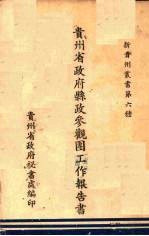 新貴州叢書第六種
貴州省政府縣政參觀團工作報告書
貴州省政府秘書處編印